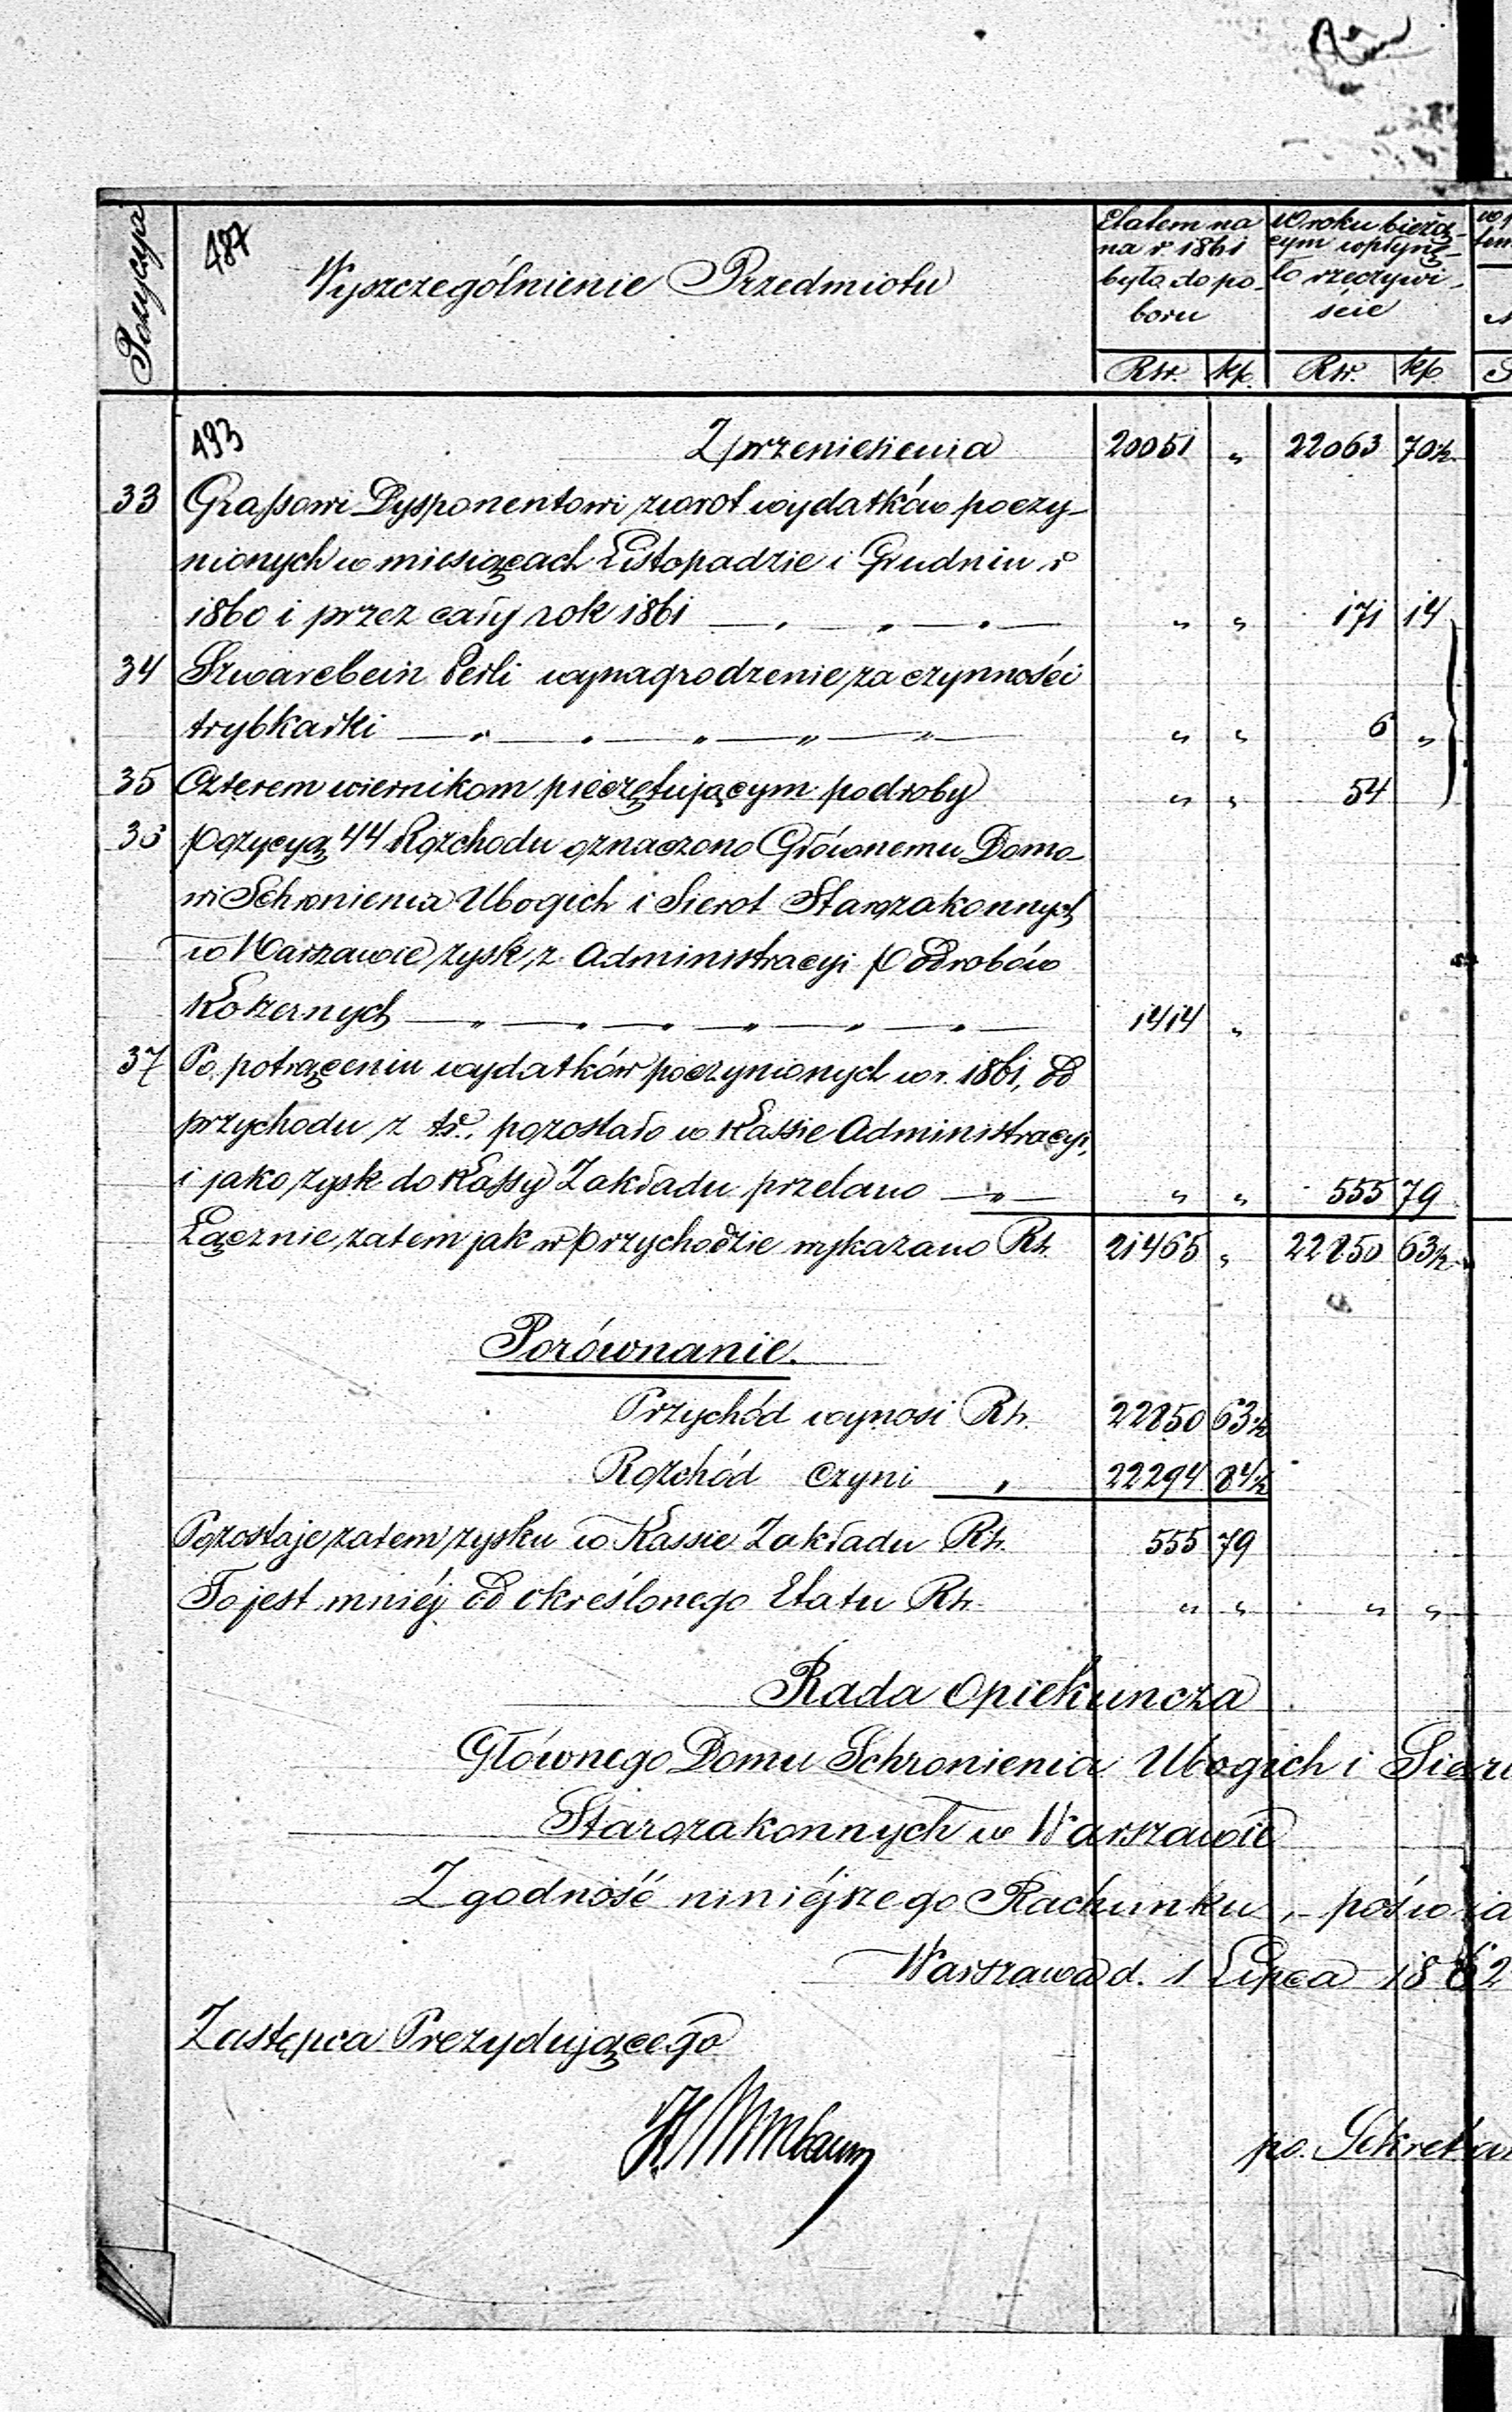 Pozycya
487
Wyszczególnienie Przedmiotu
Etatem na
na r. 1861
było do po-
boru
W roku bieżą-
cym wpłynę-
ło rzeczywi-
ście
Rsr. kp. Rsr. kp.
493
Z przeniesienia 20051 „ 22063 70½
33 Grassowi Dysponentowi zwrot wydatków poczy-
nionych w miesiącach Listopadzie i Grudniu r.
1860 i przez cały rok 1861 — „ — „ — „ — „ „ 171 14
34 Szwarcbein Perli wynagrodzenie za czynności
trybkarki — „ — „ — „ — „ — „ — „ „ 6 „
35 Czterem wiernikom pieczętującym podroby „ „ 54
36 pozycyą 44 Rozchodu oznaczono Głównemu Domo-
wi Schronienia Ubogich i Sierot Starozakonnych
w Warszawie zysk z Administracyi Podrobów
Koszernych — „ — „ — „ — „ — „ — „ — 1414 „
37 Po potrąceniu wydatków poczynionych w r. 1861, od
przychodu z tr., pozostało w Kassie Administracyi,
i jako zysk do Kassy Zakładu przelano — „ — „ „ 555 79
Łącznie zatem jak w przychodzie wykazano Rs. 21465 „ 22850 63½
Porównanie.
Przychód wynosi Rs. 22850 63½
Rozchód czyni „ 22294 84½
Pozostaje zatem zysku w Kassie Zakładu Rs. 555 79
To jest mniéj od określonego Etatu Rs. „ „ „ „
Rada Opiekuncza
Głównego Domu Schronienia Ubogich i Sier
Starozakonnych w Warszawie
Zgodność niniéjszego Rachunku, poświa
Warszawa d. 1 Lipca 1862
Zastępca Prezydującego
po. Sekretar